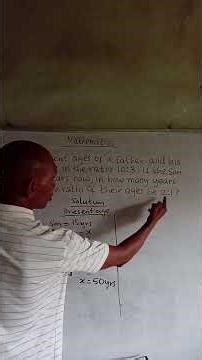 Mathematics
ent ages of a father and his
in the ratio 10:3. If the son
ears now, in how many years
ratio of their ages be 2:1?
Solution
Present age
Son = 15yrs
x
x = 50yrs